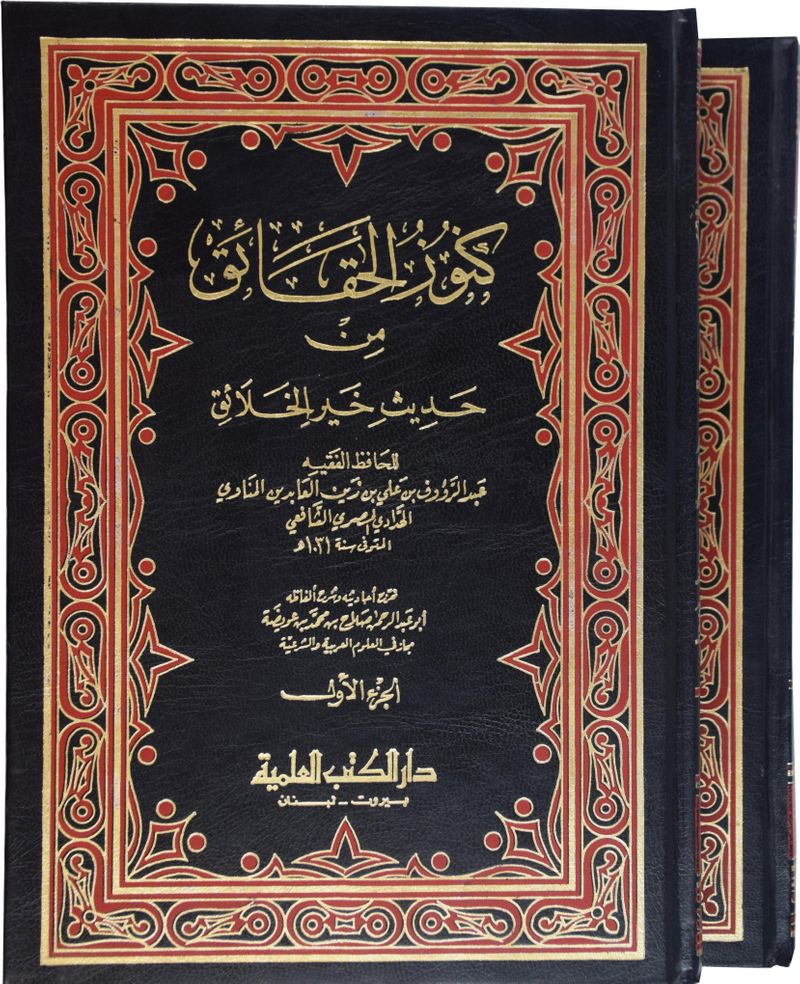 كنوز الحقائق
من
حديث خير الخلائق
للحافظ الفقيه
عبد الرؤوف بن علي بن زين العابدين المناوي
الحدادي المصري الشافعي
المتوفى سنة ١٠٣١ هـ
خرج أحاديثه وشرح ألفاظه
أبو عبد الرحمن صلاح بن محمد بن عويضة
مجاز في العلوم العربية والشرعية
الجزء الأول
دار الكتب العلمية
بيروت - لبنان